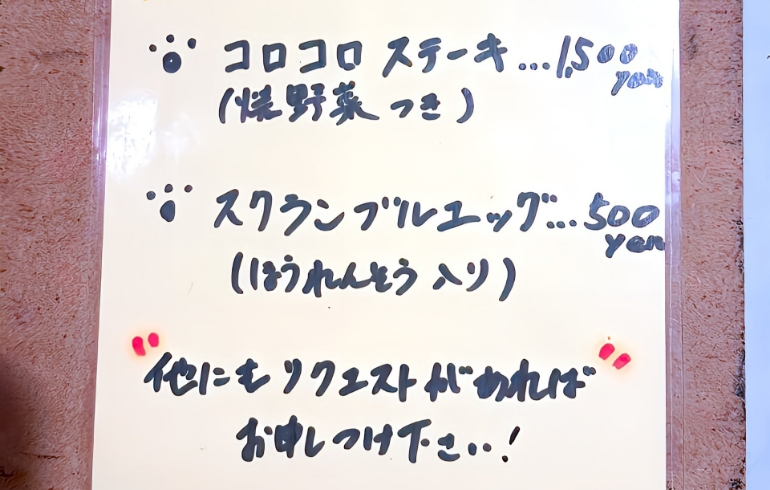 コロコロステーキ...1,500 yen
(焼野菜つき)
スクランブルエッグ...500 yen
(ほうれんそう入り)
"他にもリクエストがあれば"
お申しつけ下さい!